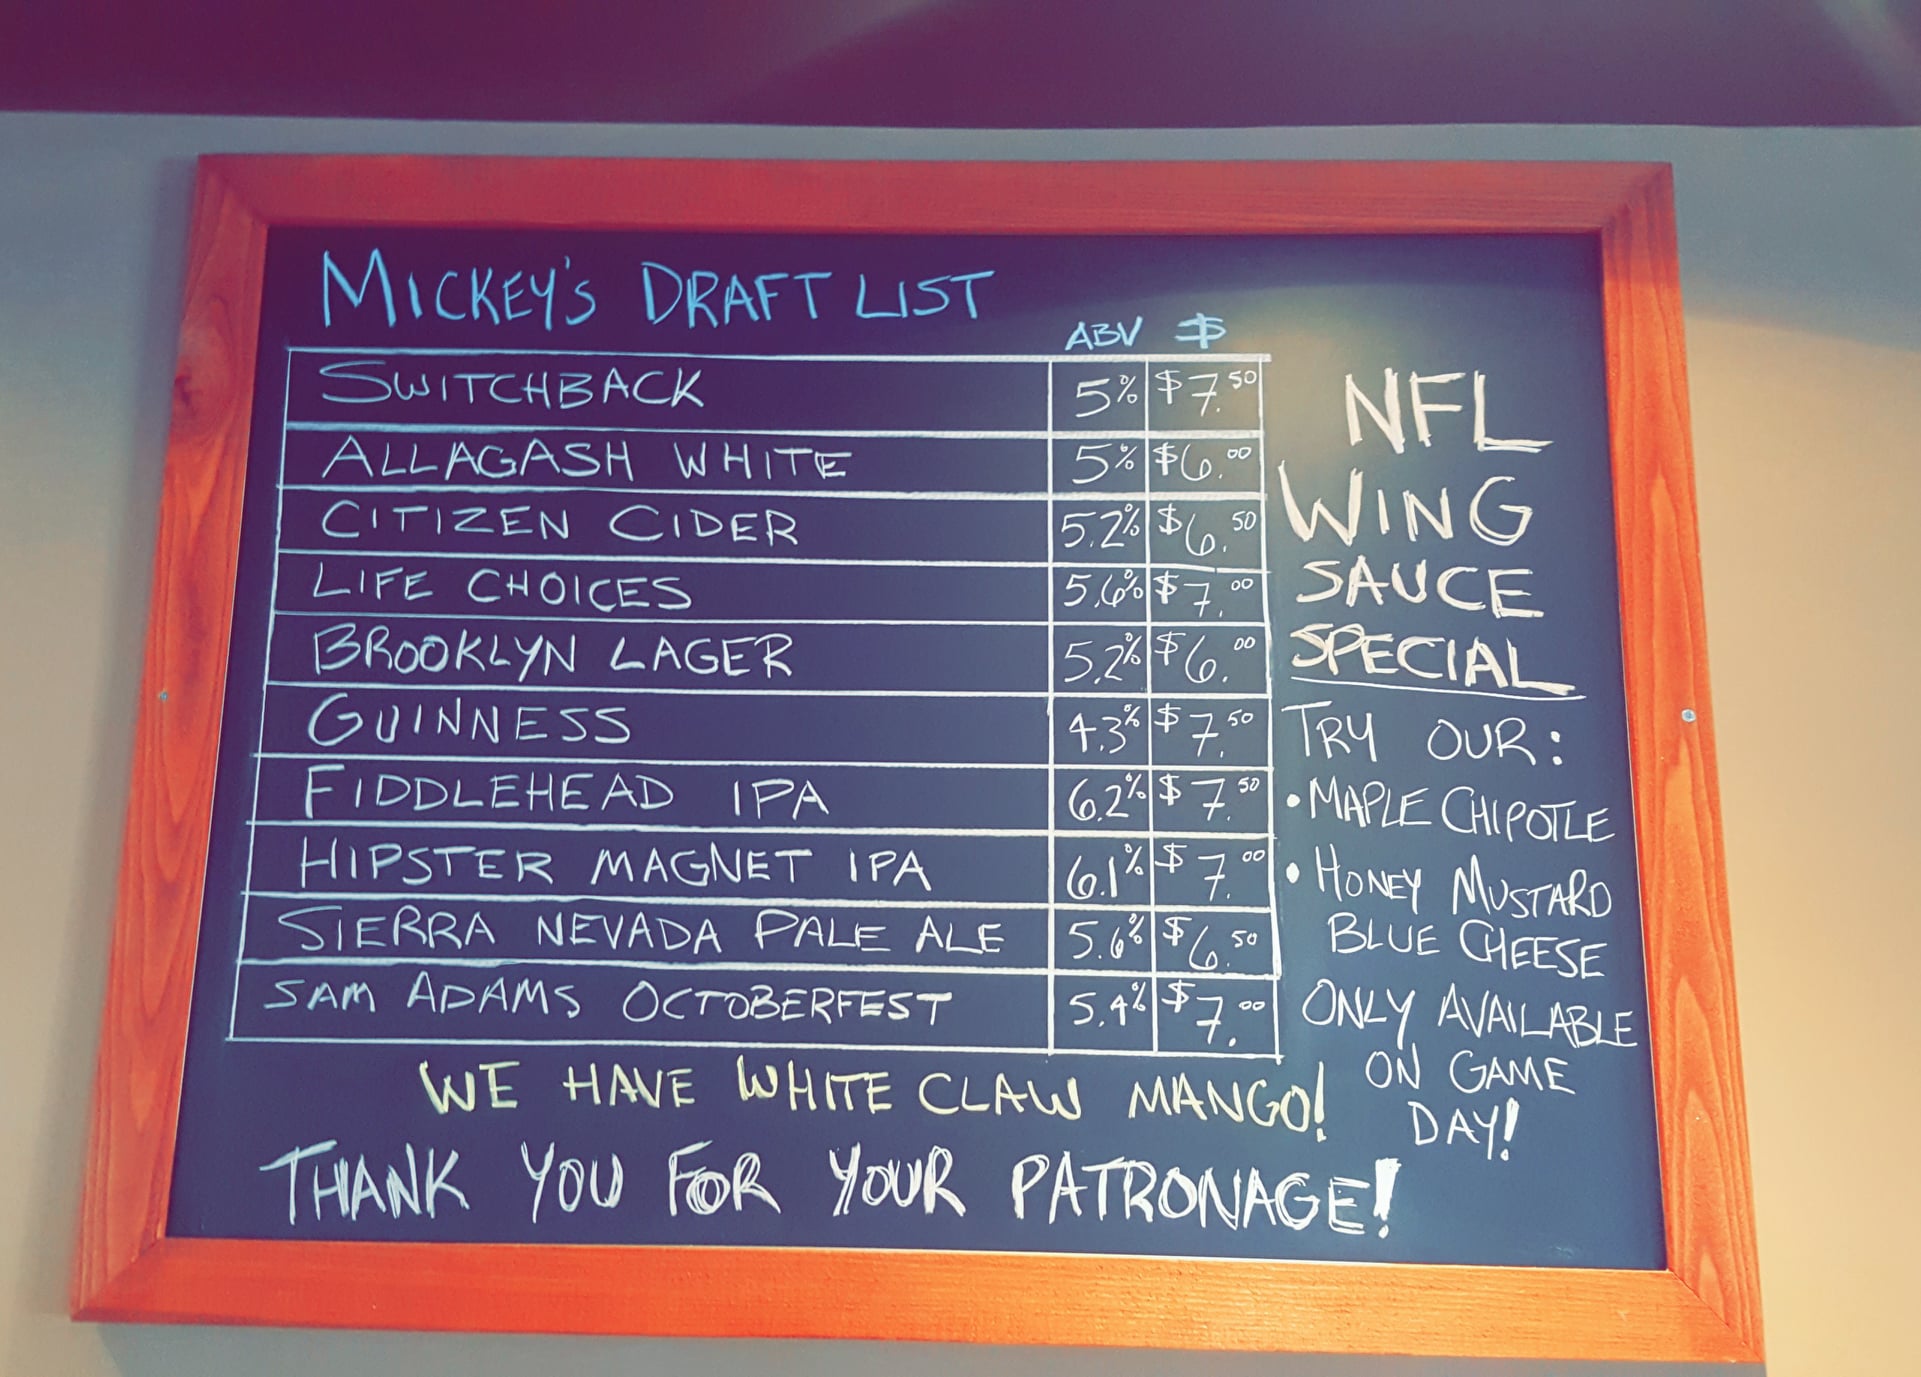 MICKEY'S DRAFT LIST
ABV $
SWITCHBACK 5% $7.50
ALLAGASH WHITE 5% $6.00
CITIZEN CIDER 5.2% $6.50
LIFE CHOICES 5.6% $7.00
BROOKLYN LAGER 5.2% $6.00
GUINNESS 4.3% $7.50
FIDDLEHEAD IPA 6.2% $7.50
HIPSTER MAGNET IPA 6.1% $7.00
SIERRA NEVADA PALE ALE 5.6% $6.50
SAM ADAMS OCTOBERFEST 5.4% $7.00
WE HAVE WHITE CLAW MANGO!
THANK YOU FOR YOUR PATRONAGE!
NFL
WING
SAUCE
SPECIAL
TRY OUR:
• MAPLE CHIPOTLE
• HONEY MUSTARD
BLUE CHEESE
ONLY AVAILABLE
ON GAME
DAY!